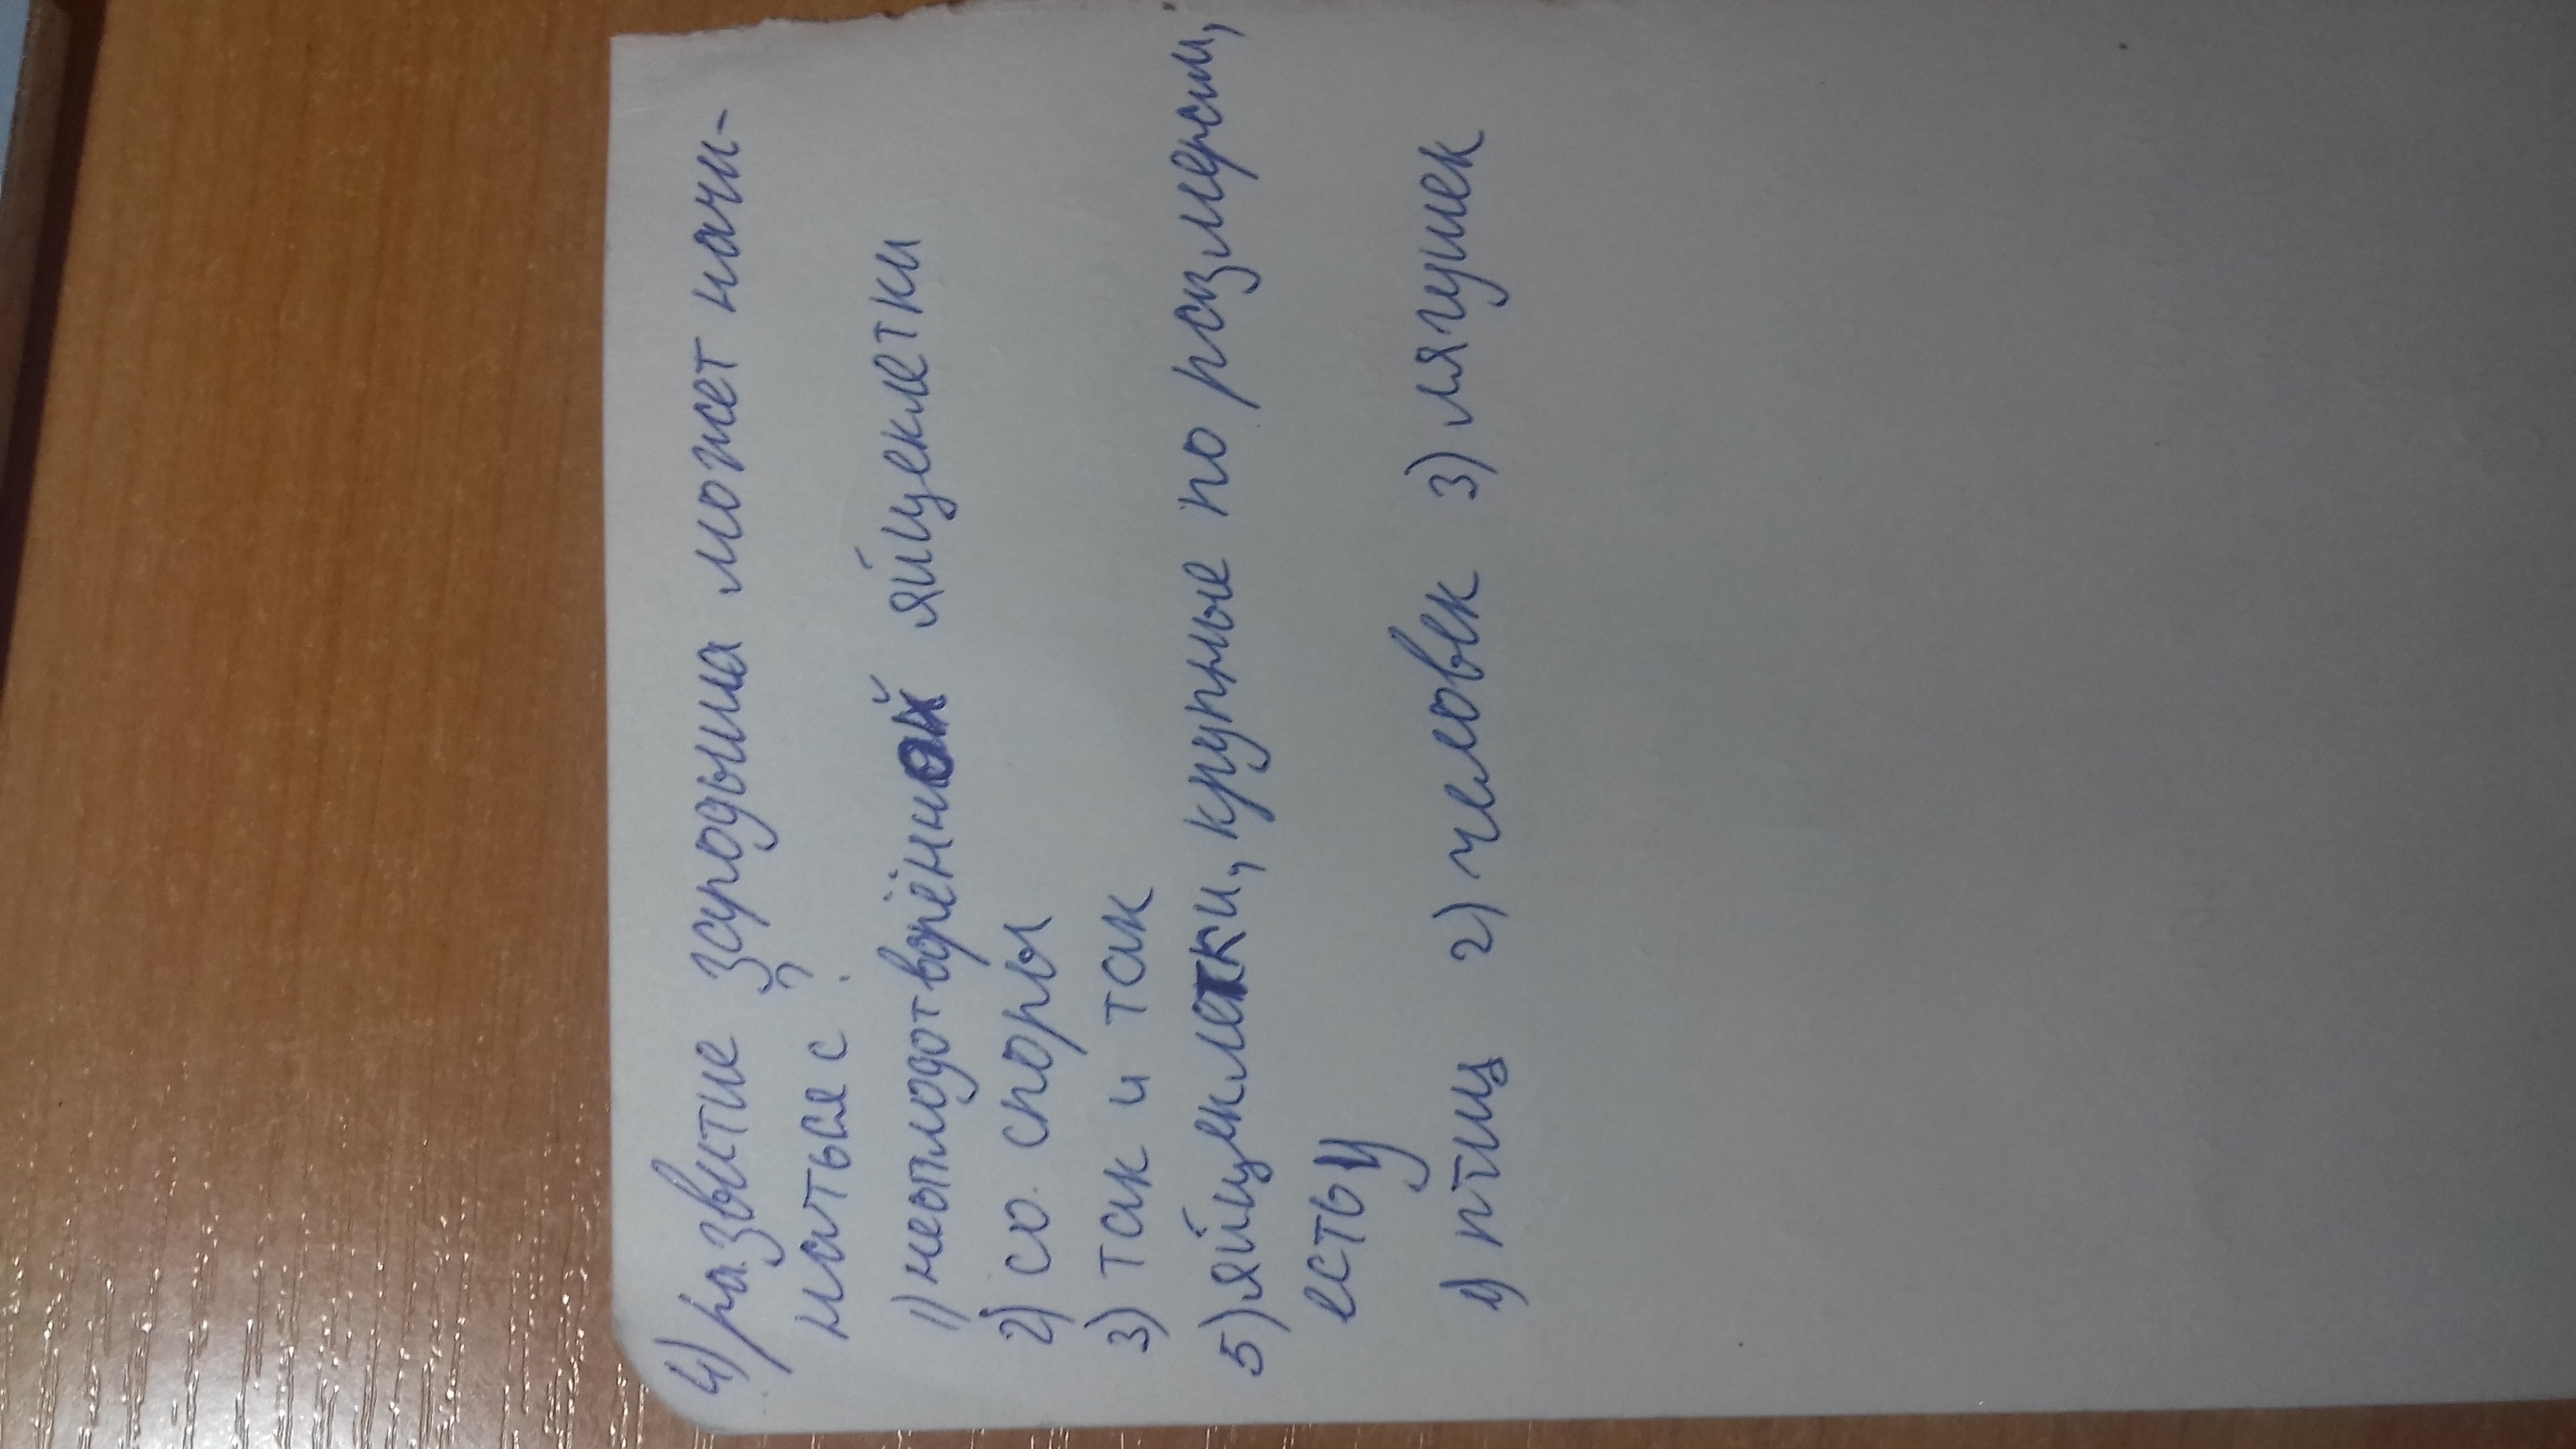 4) развитие зародыша может начи-
наться с ?
1) неоплодотворённой яйцеклетки
2) со споры
3) так и так
5) яйцеклетки, крупные по размерам,
есть у
1) птиц 2) человек 3) лягушек